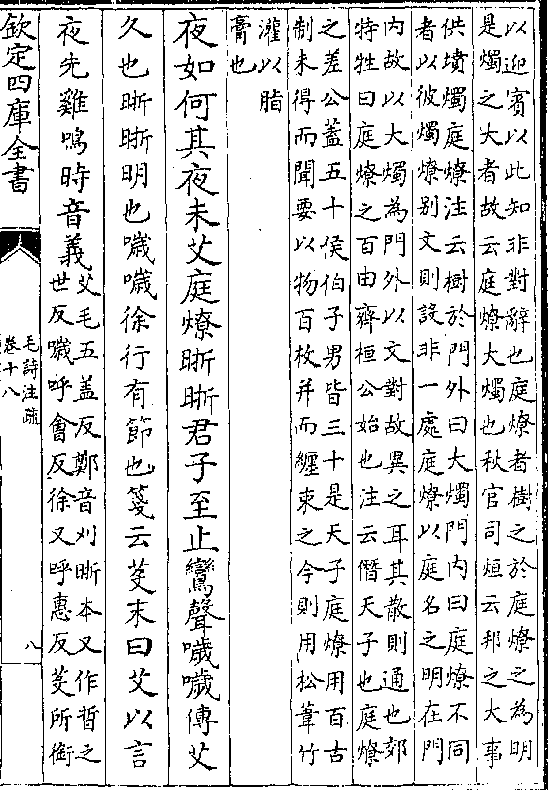 以迎賓以此知非對辭也庭燎者樹之於庭燎之為明
是燭之大者故云庭燎大燭也秋官司烜云邦之大事
供墳燭庭燎注云樹於門外曰大燭門内曰庭燎不同
者以彼燭燎别文則設非一處庭燎以庭名之明在門
内故以大燭為門外以文對故異之耳其散則通也郊
特牲曰庭燎之百由齊桓公始也注云僭天子也庭燎
之差公蓋五十侯伯子男皆三十是天子庭燎用百古
制未得而聞要以物百枚并而纏束之今則用松葦竹
灌以脂
膏也
夜如何其夜未艾庭燎晣晣君子至止鸞聲噦噦傳艾
久也晣晣明也噦噦徐行有節也箋云芟末曰艾以言
夜先雞鳴時音義艾毛五盖反鄭音刈晣本又作晢之
世反噦呼會反徐又呼惠反芟所銜
欽定四庫全書
毛詩注疏
卷十八
八